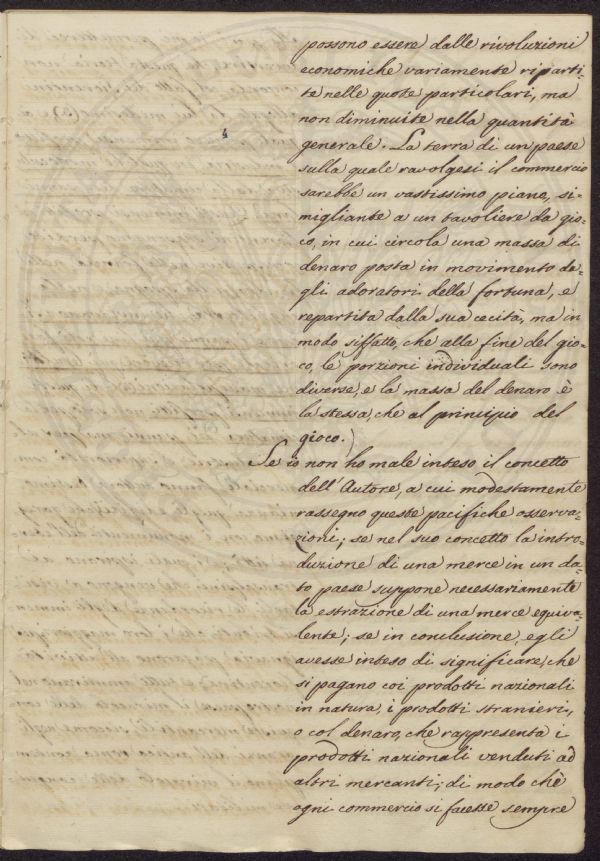 possono essere dalle rivoluzioni
economiche variamente riparti-
te nelle quote particolari, ma
non diminuite nella quantità
generale. La terra di un paese
sulla quale ravolgesi il commercio
sarebbe un vastissimo piano, si-
migliante a un tavoliere da gio-
co, in cui circola una massa di
denaro posta in movimento da-
gli adoratori della fortuna, e
repartita dalla sua cecità, ma in
modo siffatto, che alla fine del gio-
co, le porzioni individuali sono
diverse, e la massa del denaro è
la stessa, che al principio del
gioco.)
Se io non ho male inteso il concetto
dell'Autore, a cui modestamente
rassegno queste pacifiche osserva-
zioni; se nel suo concetto la intro-
duzione di una merce in un da-
to paese suppone necessariamente
la estrazione di una merce equiva-
lente; se in conclusione, egli
avesse inteso di significare, che
si pagano coi prodotti nazionali
in natura, i prodotti stranieri,
o col denaro, che rappresenta i
prodotti nazionali venduti ad
altri mercanti; di modo chè
ogni commercio si facesse sempre